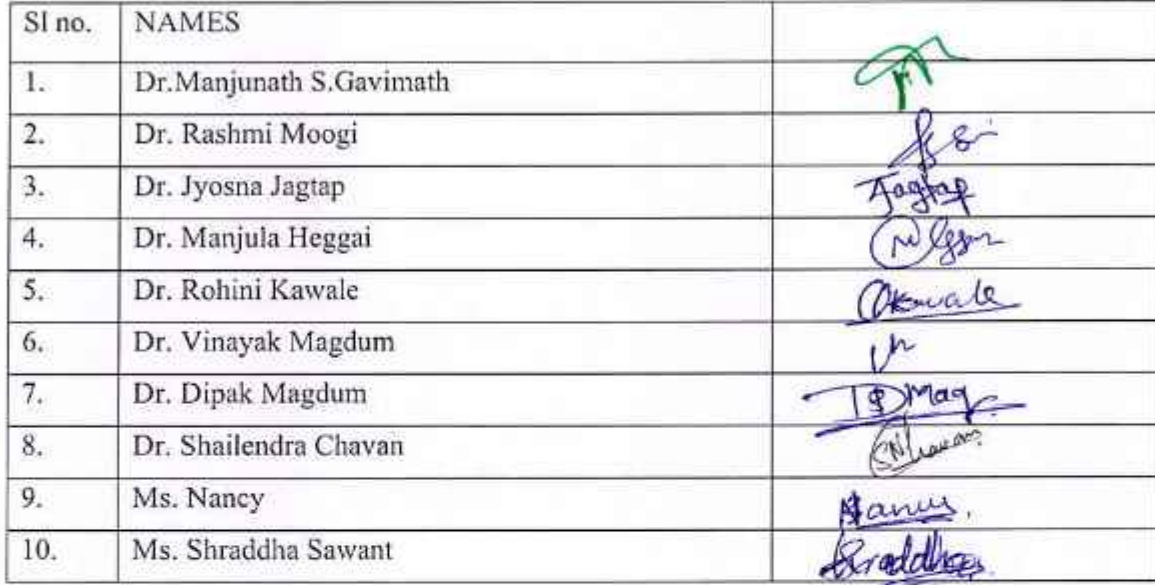 Sl no. NAMES
1. Dr.Manjunath S.Gavimath
2. Dr. Rashmi Moogi
3. Dr. Jyosna Jagtap Jagtap
4. Dr. Manjula Heggai
5. Dr. Rohini Kawale
6. Dr. Vinayak Magdum
7. Dr. Dipak Magdum
8. Dr. Shailendra Chavan
9. Ms. Nancy
10. Ms. Shraddha Sawant